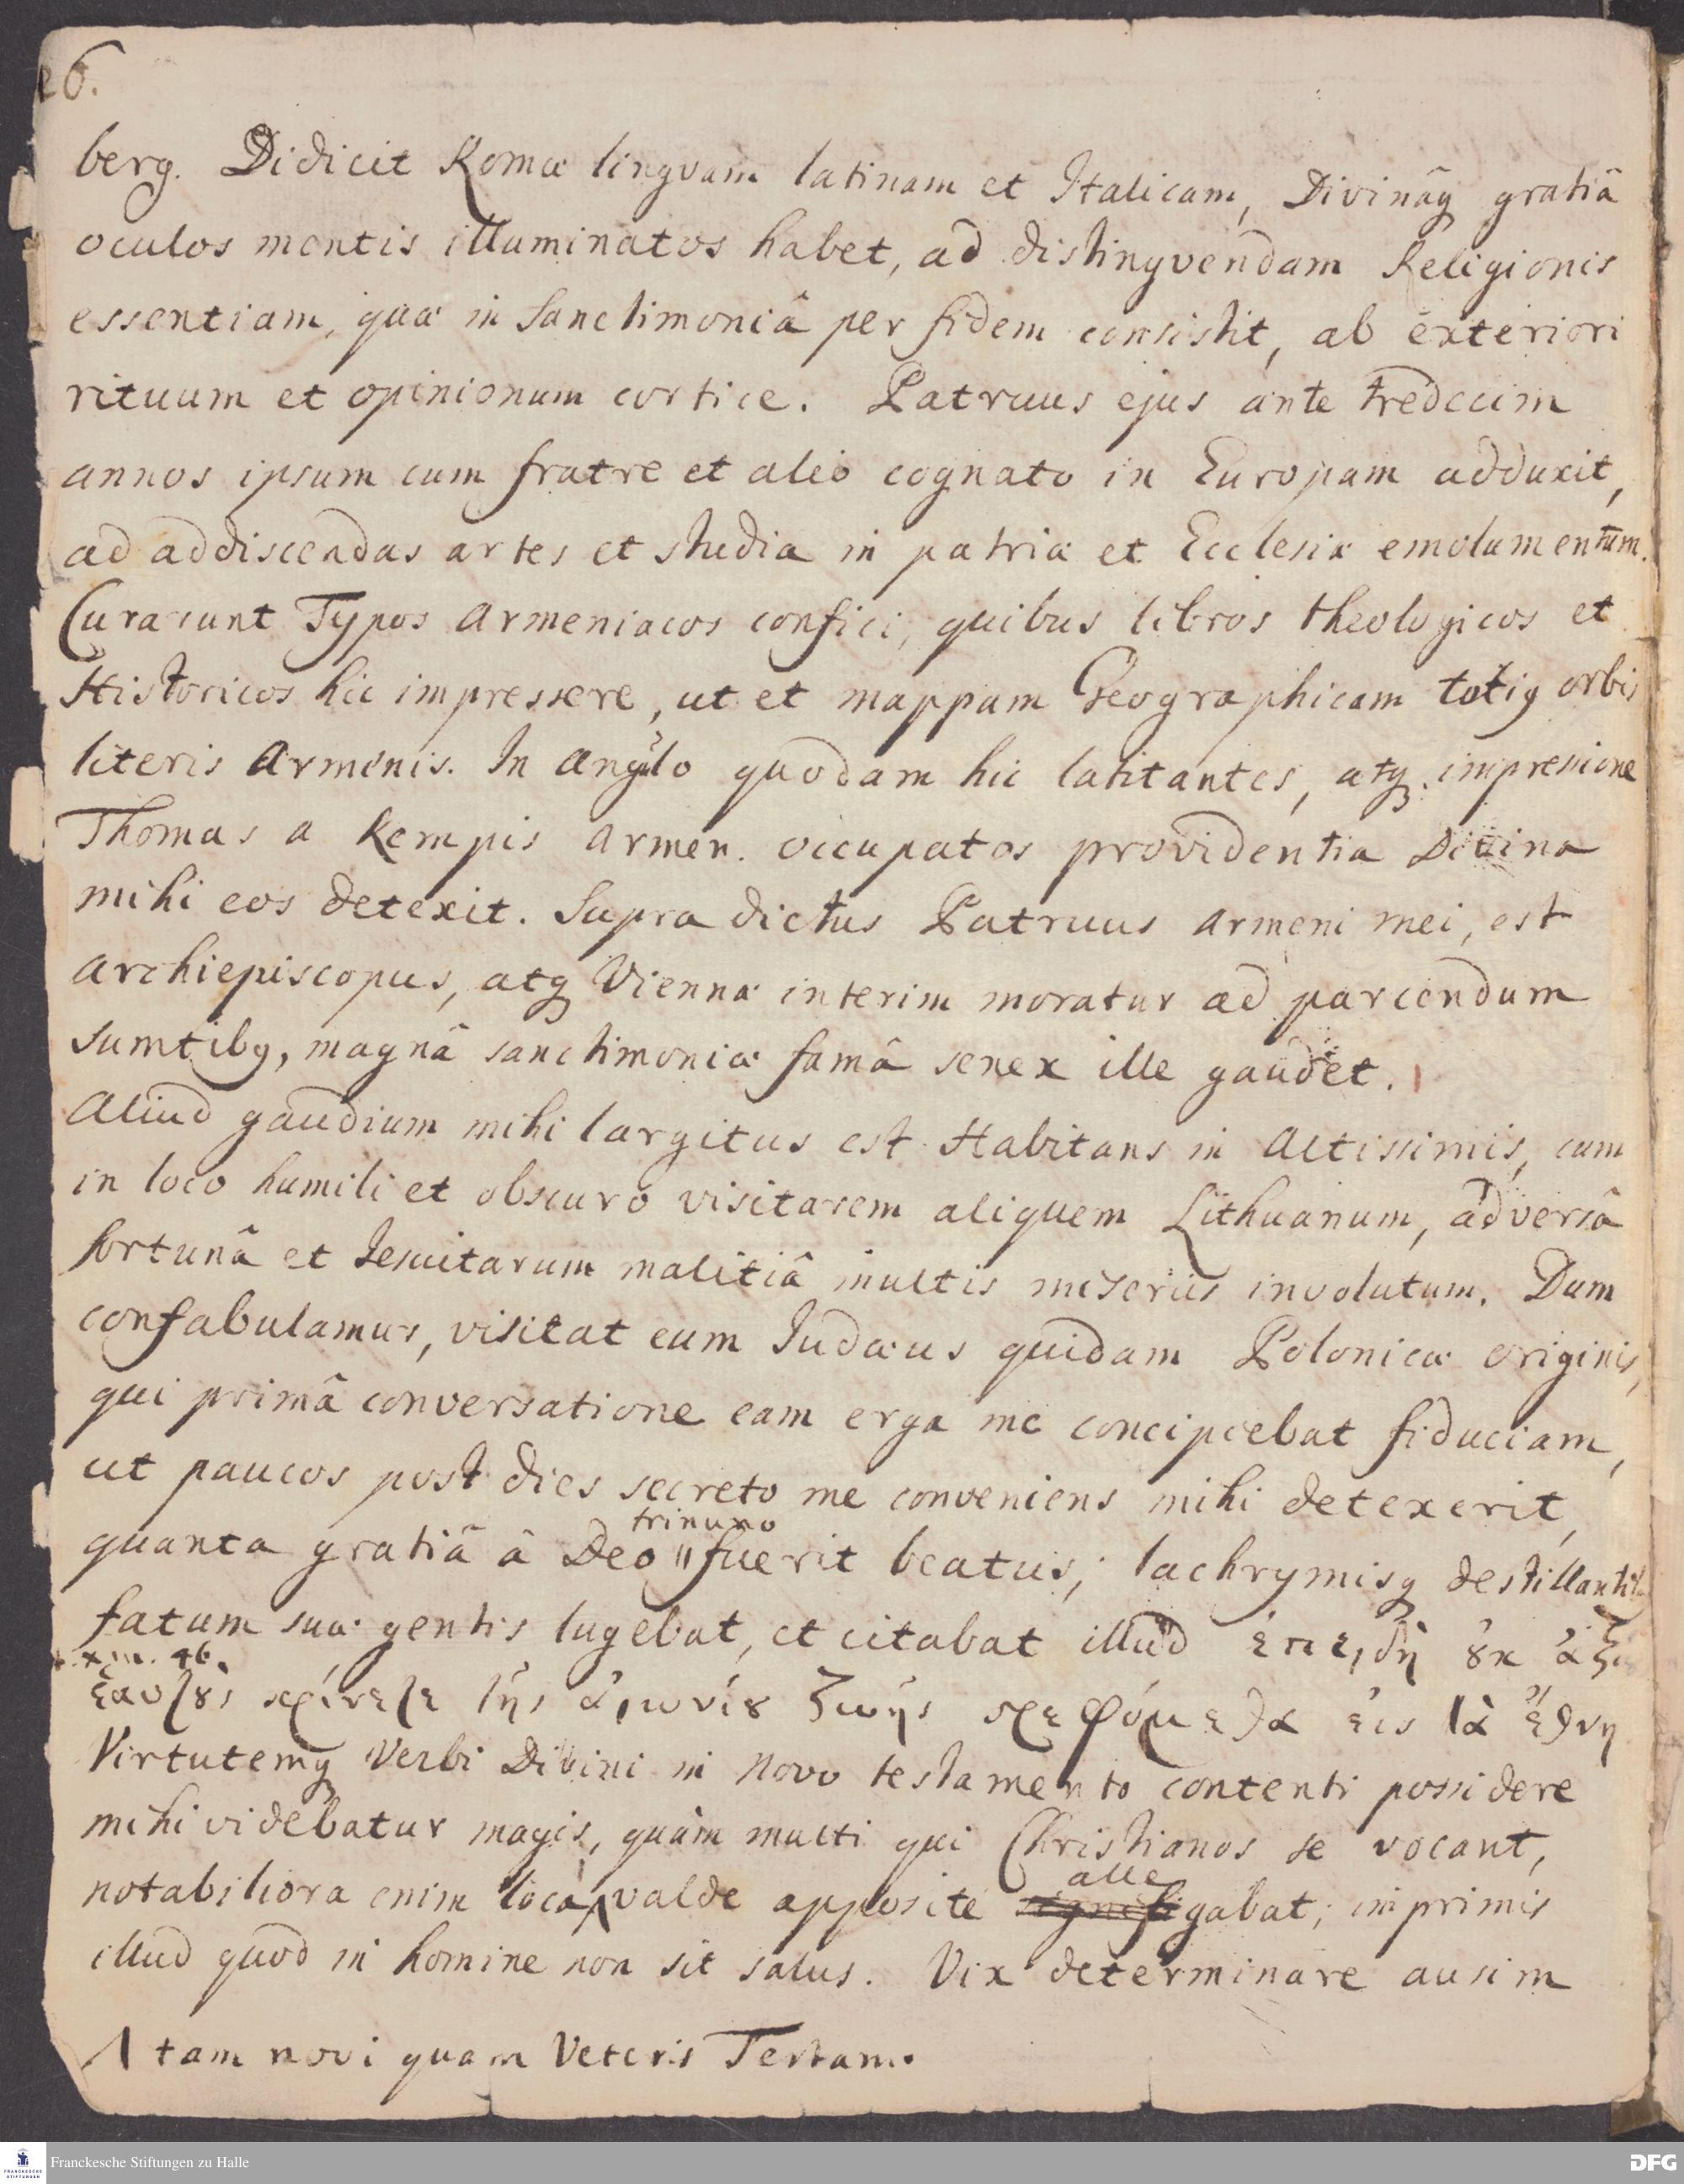 26.
berg. Didicit Romæ lingvam latinam et Italicam, Divinâq gratiâ
oculos mentis illuminatos habet, ad distingvendam Religionis
essentiam, quæ in Sanctimoniâ per fidem consistit, ab exteriori
rituum et opinionum cortice. Patruus ejus ante tredecim
annos ipsum cum fratre et alio cognato in Europam adduxit,
ad addiscendas artes et studia in patriæ et Ecclesiæ emolumentum.
Curarunt Typos Armeniacos confici, quibus libros theologicos et
Historicos hic impressere, ut et mappam Geographicam totiq orbis
literis Armenis. In angulo quodam hic latitantes, atq impressione
Thomas a Kempis Armen. occupatos providentia Divina
mihi eos detexit. Supra dictus Patruus Armeni mei, est
Archiepiscopus, atq Viennæ interim moratur ad parcendum
sumtibq, magnâ sanctimoniæ famâ senex ille gaudet.
Aliud gaudium mihi largitus est Habitans in Altissimis, cum
in loco humili et obscuro visitarem aliquem Lithuanum, adversâ
fortunâ et Jesuitarum malitiâ multis miseriis involutum. Dum
confabulamur, visitat eum Judæus quidam Polonicæ originis,
qui primâ conversatione eam erga me concipiebat fiduciam,
ut paucos post dies secreto me conveniens mihi detexerit,
trinuno
quanta gratiâ â Deo || fuerit beatus; lachrymisq destillantib
fatum suæ gentis lugebat, et citabat illud ἐπειδὴ ȣκ ἀξι
XIII. 46.
ἑαυτȣς κρίνετε τῆς αἰωνίȣ ζωῆς στρεφόμεθα εἰς τὰ ἔθνη
Virtutemq Verbi Divini in Novo testamento contenti possidere
mihi videbatur magis, quàm multi qui Christianos se vocant,
alle
notabiliora enim loca, valde apposite gabat; imprimis
illud quod in homine non sit salus. Vix determinare ausim
tam novi quam Veteris Testam.
Franckesche Stiftungen zu Halle
FRANCKESCHE STIFTUNGEN
DFG